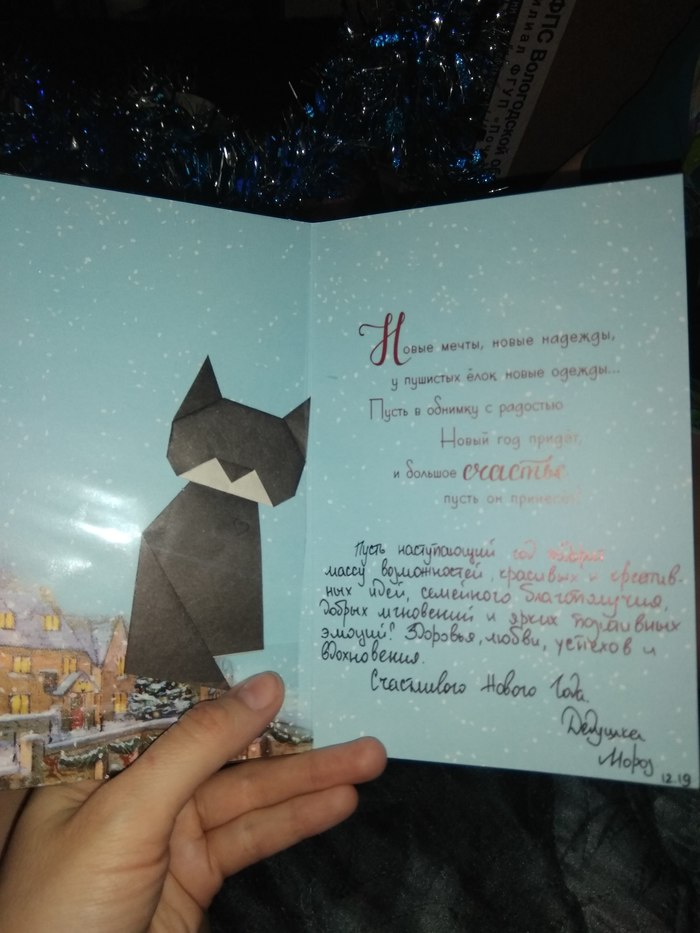 ФПС Вологодской об
илиал ФГУП «Поч
Новые мечты, новые надежды,
у пушистых ёлок новые одежды...
Пусть в обнимку с радостью
Новый год придёт,
и большое счастье
пусть он принесёт!
Пусть наступающий год
массу возможностей, красивых и креатив-
ных идей, семейного благополучия,
добрых мгновений и ярких позитивных
эмоций! Здоровья, любви, успехов и
вдохновения.
Счастливого Нового Года.
Дедушка
Мороз
12.19